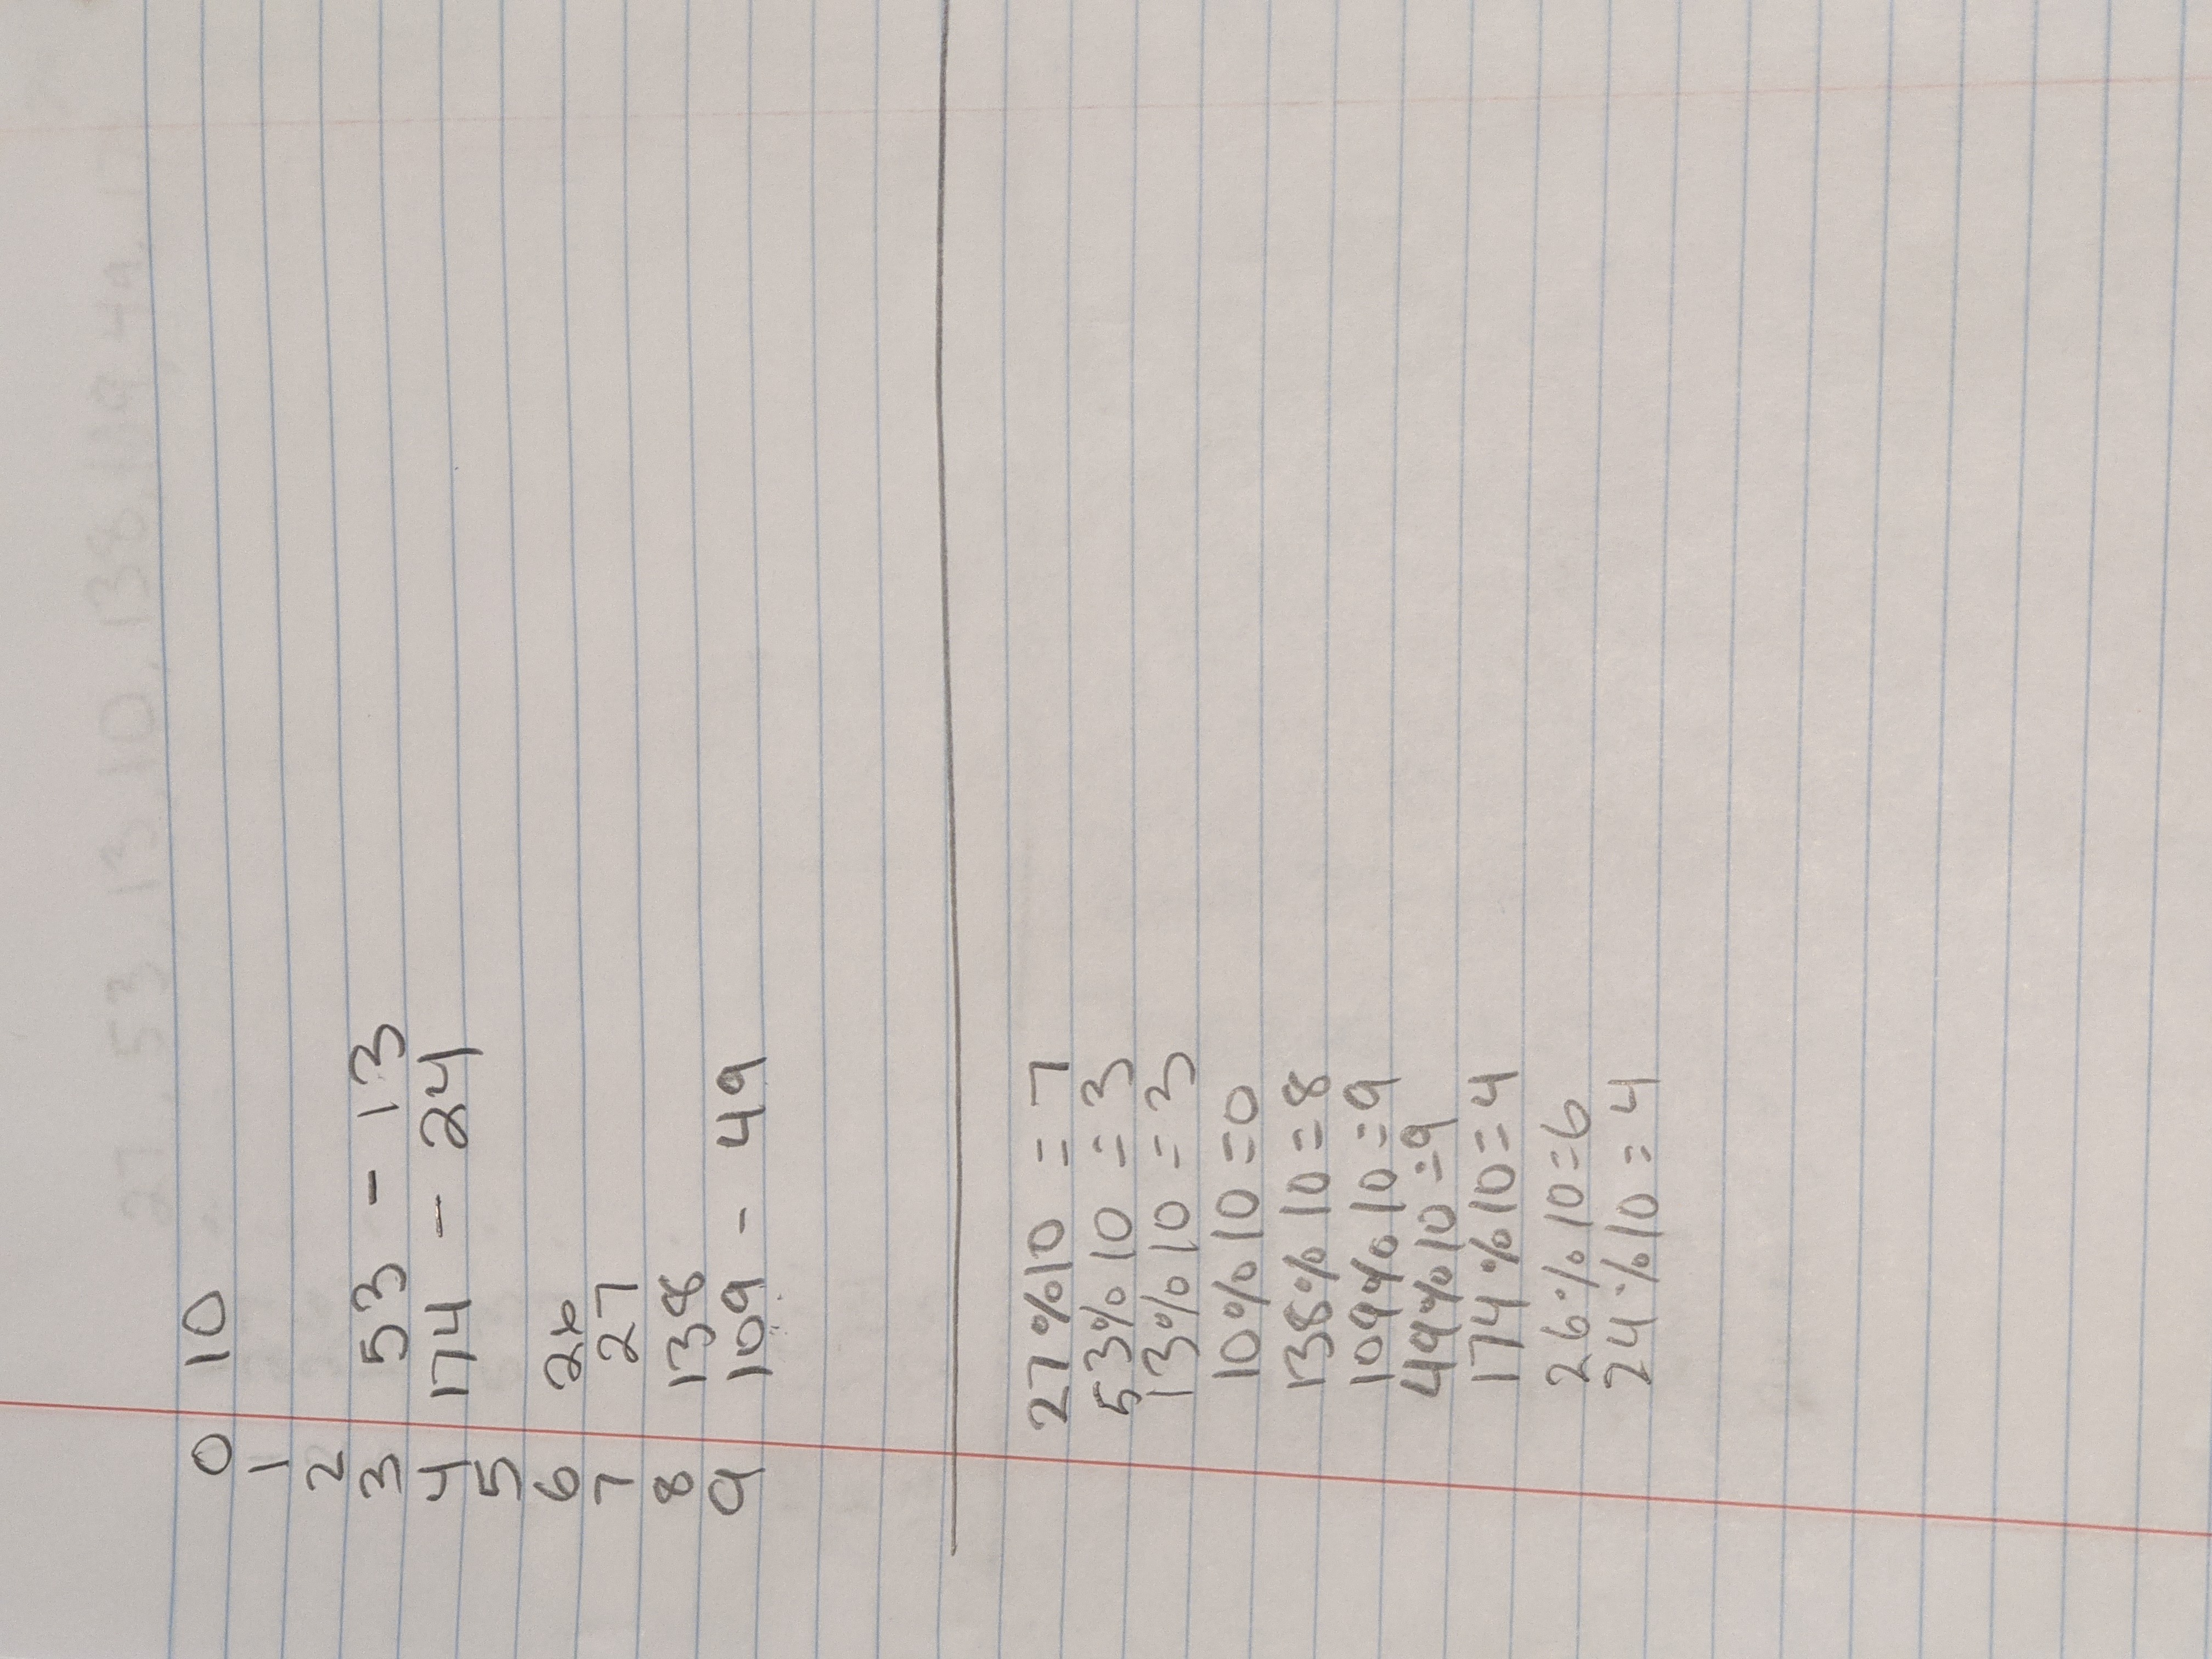 0 10
1
2
3 53 - 13
4 174 - 24
5
6 26
7 27
8 138
9 109 - 49
27%10 = 7
53%10 = 3
13%10 = 3
10%10=0
138%10=8
109%10=9
49%10=9
174%10=4
26%10=6
24%10=4